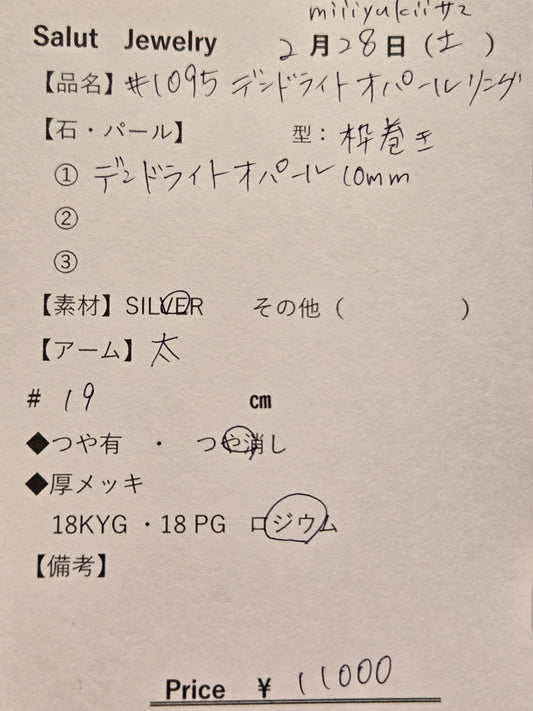 miiiyukiiサマ
Salut Jewelry 2月28日(土)
【品名】#1095 デンドライトオパールリング
【石・パール】 型:枠巻き
① デンドライトオパール 10mm
②
③
【素材】SILVER その他( )
【アーム】太
# 19 cm
◆つや有 ・ つや消し
◆厚メッキ
18KYG ・18 PG ロジウム
【備考】
Price ¥ 11000